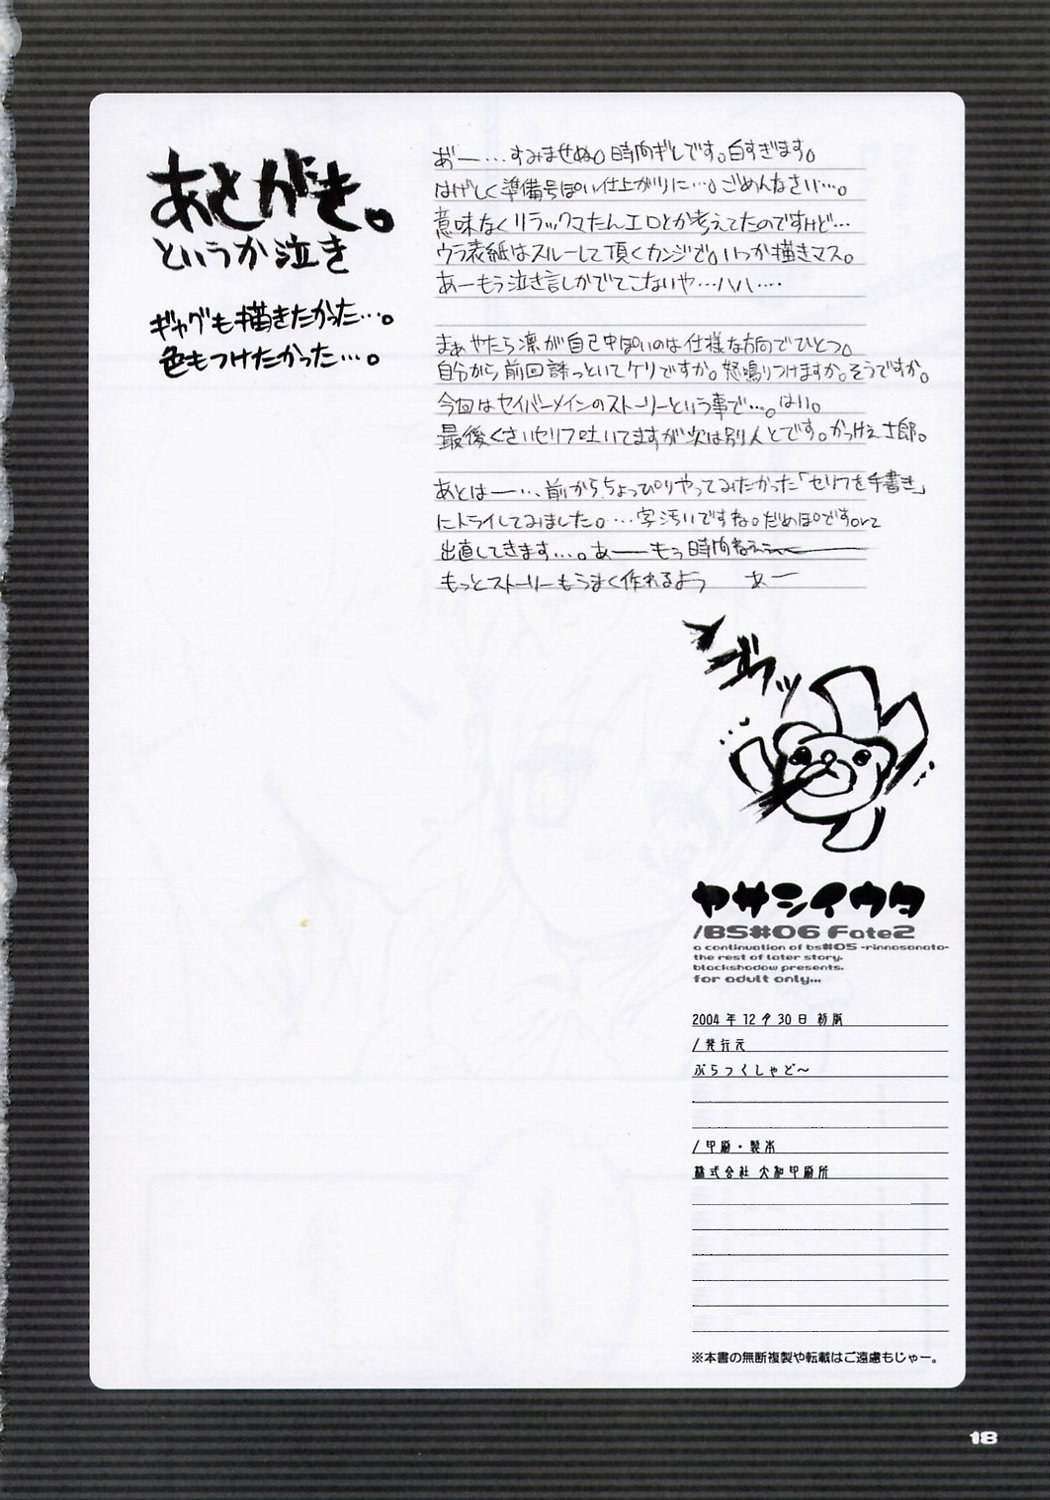 あとがき。
というか泣き
ギャグも描きたかった…。
色もつけたかった…。
あ゛ー…すみませぬ。時間ギレです。白すぎます。
はげしく準備号ぽい仕上がりに…。ごめんなさい…。
意味なくリラックマたんエロとか考えてたのですけど…
ウラ表紙はスルーして頂くカンジで。いつか描きマス。
あーもう泣き言しかでてこないや…ハハ…
まぁやたら凛が自己中ぽいのは仕様な方向でひとつ。
自分から前回誘っといてケリですか。怒鳴りつけますか。そうですか。
今回はセイバーメインのストーリーという事で…。はい。
最後くさいセリフ吐いてますが次は別人とです。かっけぇ士郎。
あとはー…、前からちょっぴりやってみたかった「セリフを手書き」
にトライしてみました。…字汚いですね。だめぽですorz
出直してきます…。あーもう時間ねぇー
もっとストーリーもうまく作れるよう あー
ヤサシイウタ
/BS#06 Fate2
a continuation of bs#05 -rinnosonata-
the rest of later story.
blackshadow presents.
for adult only...
2004 年 12 月 30 日 初版
/ 発行元
ぶらっくしゃど～
/ 印刷・製本
株式会社 大和印刷所
※本書の無断複製や転載はご遠慮もじゃー。
18